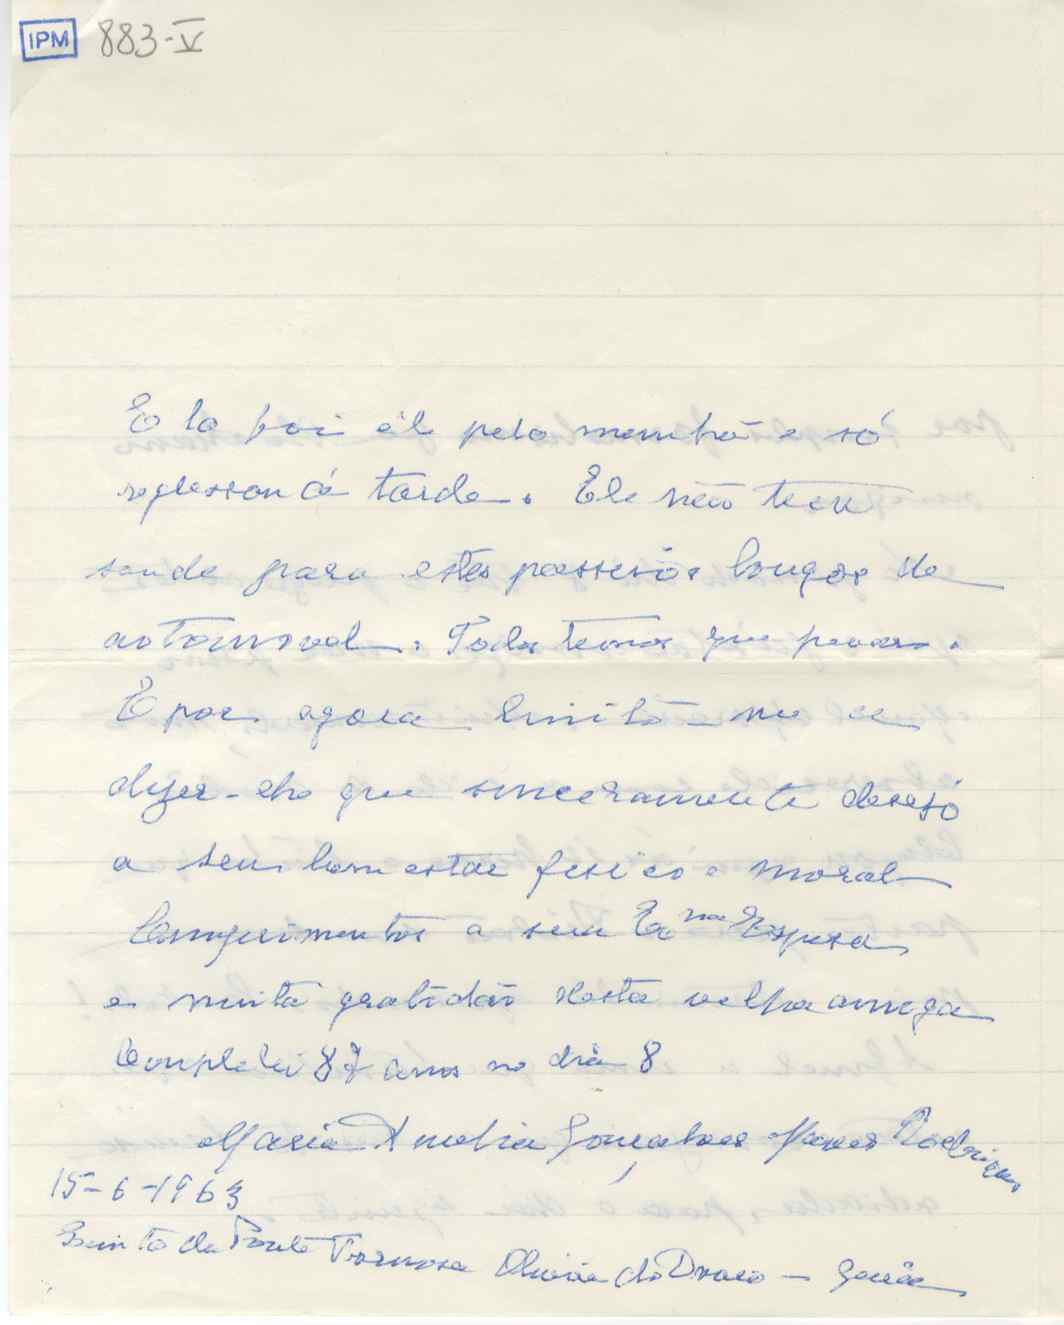 IPM 883-V
E lá foi ele pela manhã e só
regressou á tarde. Ele não tem
saude para estes passeios longos de
automovel. Todos temos que
E por agora limito-me a
dizer-lhe que sinceramente desejo
o seu bem estar fisico e moral
Comprimentos a sua Ex.ma Esposa
e muita gratidão desta velha amiga
Completei 87 anos no dia 8
Maria Amelia Gonçalves Rodrigues
15-6-1963
Quinta da Ponte Formosa Oliveira do Douro — Gaia